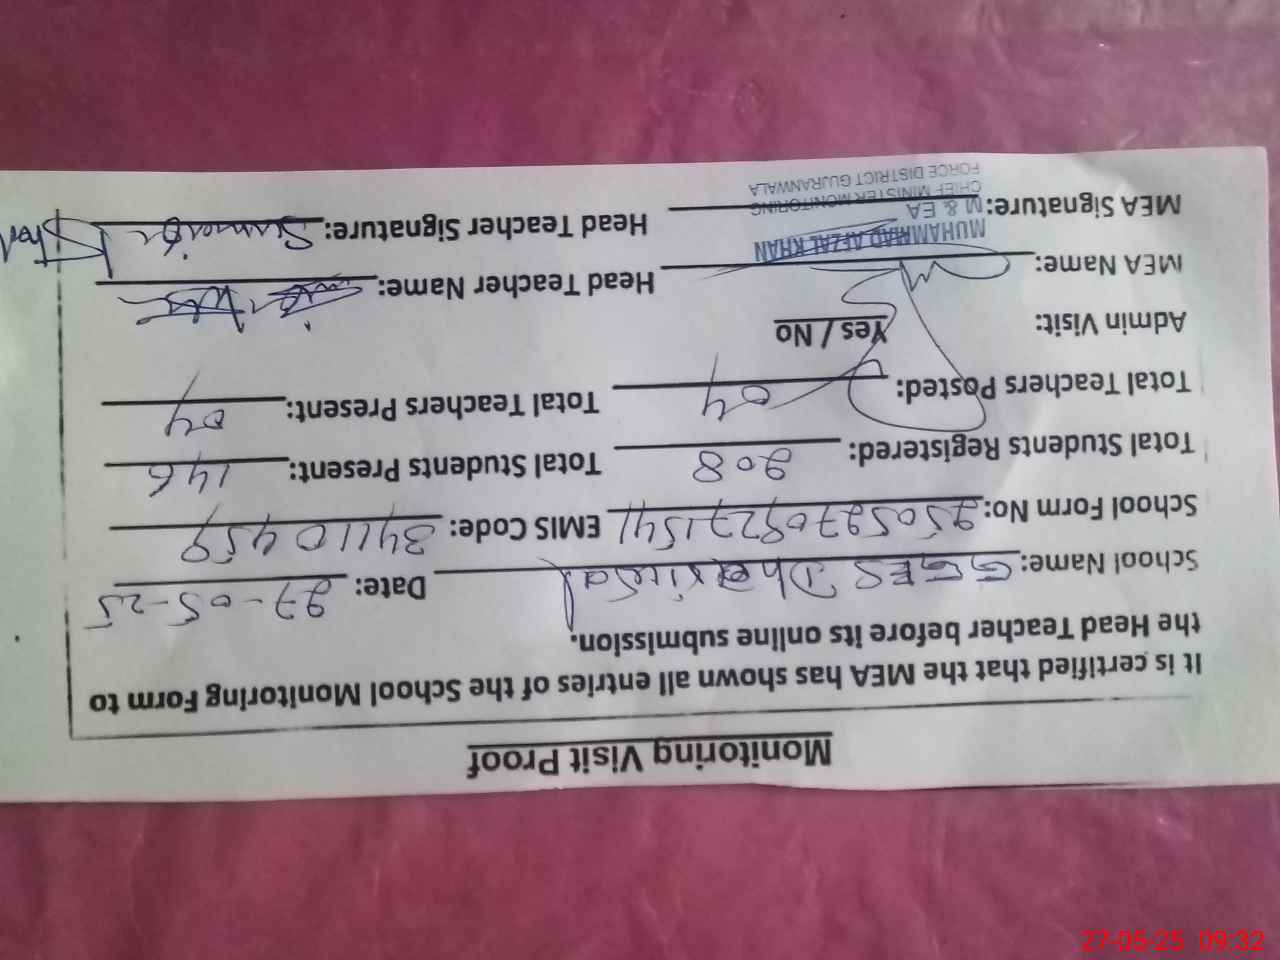 Monitoring Visit Proof
It is certified that the MEA has shown all entries of the School Monitoring Form to
the Head Teacher before its online submission.
School Name: GGES Date: 27-05-25
School Form No: 25052709271541 EMIS Code: 34110459
Total Students Registered: 208 Total Students Present: 146
Total Teachers Posted: 04 Total Teachers Present: 04
Admin Visit: Yes / No
MEA Name: Head Teacher Name:
MUHAMMAD AFZAL KHAN
M & EA
MEA Signature: Head Teacher Signature:
CHIEF MINISTER MONITORING
FORCE DISTRICT GUJRANWALA
27-05-25 09:32